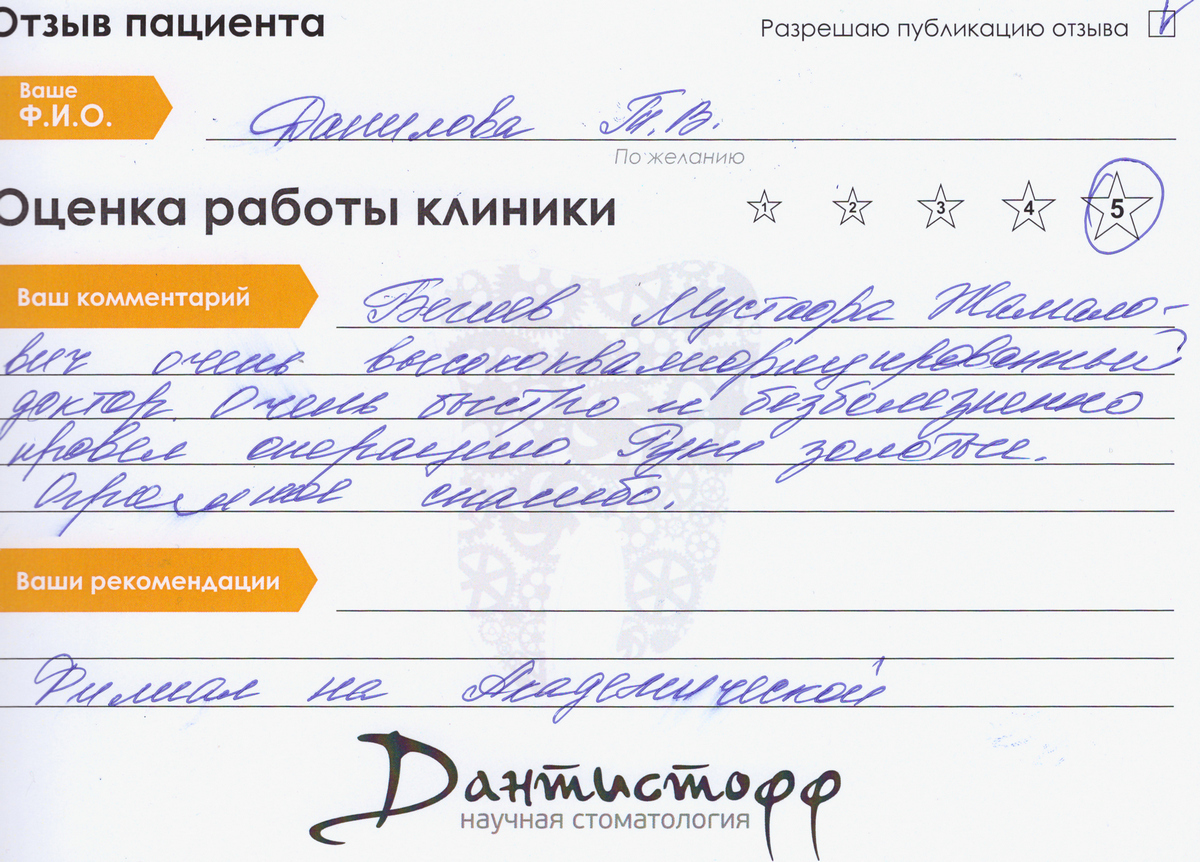 Отзыв пациента
Разрешаю публикацию отзыва V
Ваше
Ф.И.О.
Данилова Т.В.
По желанию
Оценка работы клиники
1 2 3 4 5
Ваш комментарий
Мустафа Жамало-
вич очень высококвалифицированный
доктор. Очень быстро и безболезненно
провел операцию. Руки золотые.
Огромное спасибо.
Ваши рекомендации
Филиал на Академической
Дантистофф
научная стоматология